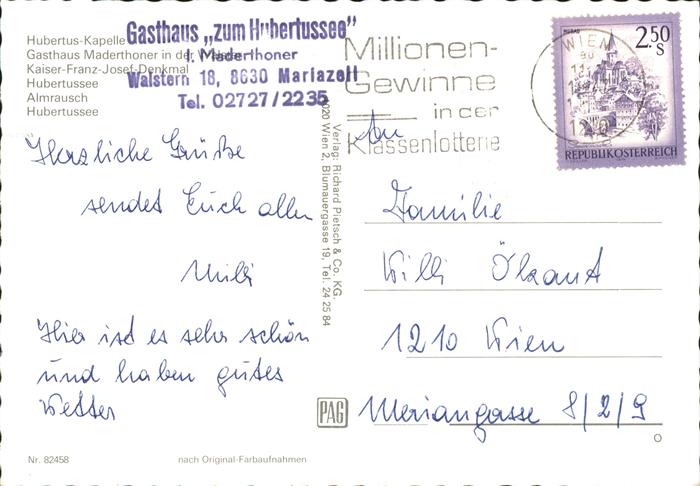 Hubertus-Kapelle
Gasthaus Maderthoner in der
Kaiser-Franz-Josef-Denkmal
Hubertussee
Almrausch
Hubertussee
Gasthaus „zum Hubertussee"
J. Maderthoner
Walstern 18, 8630 Mariazell
Tel. 02727/2235
Millionen-
Gewinne
in der
Klassenlotterie
WIEN
2.50
S
REPUBLIK ÖSTERREICH
Herzliche Grüße
sendet Euch allen
Milli
Hier ist es sehr schön
und haben gutes
Wetter
Verlag: Richard Pietsch & Co. KG.
1020 Wien 2, Blumauergasse 19, Tel. 24 25 84
An
Familie
Willi
1210 Wien
Meriangasse 8/2/9
PAG
Nr. 82458
nach Original-Farbaufnahmen